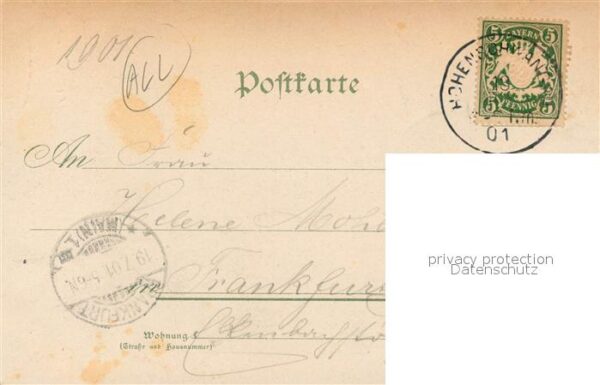 1901
ALL
Postkarte
BAYERN
5 5
5 PFENNIG 5
HOHENSCHWANG
01
An Frau
Helene Moh
in Frankfur
Wohnung
(Straße und Hausnummer)
FRANKFURT
(MAIN) 1
19.7.01.5-6N.
privacy protection
Datenschutz